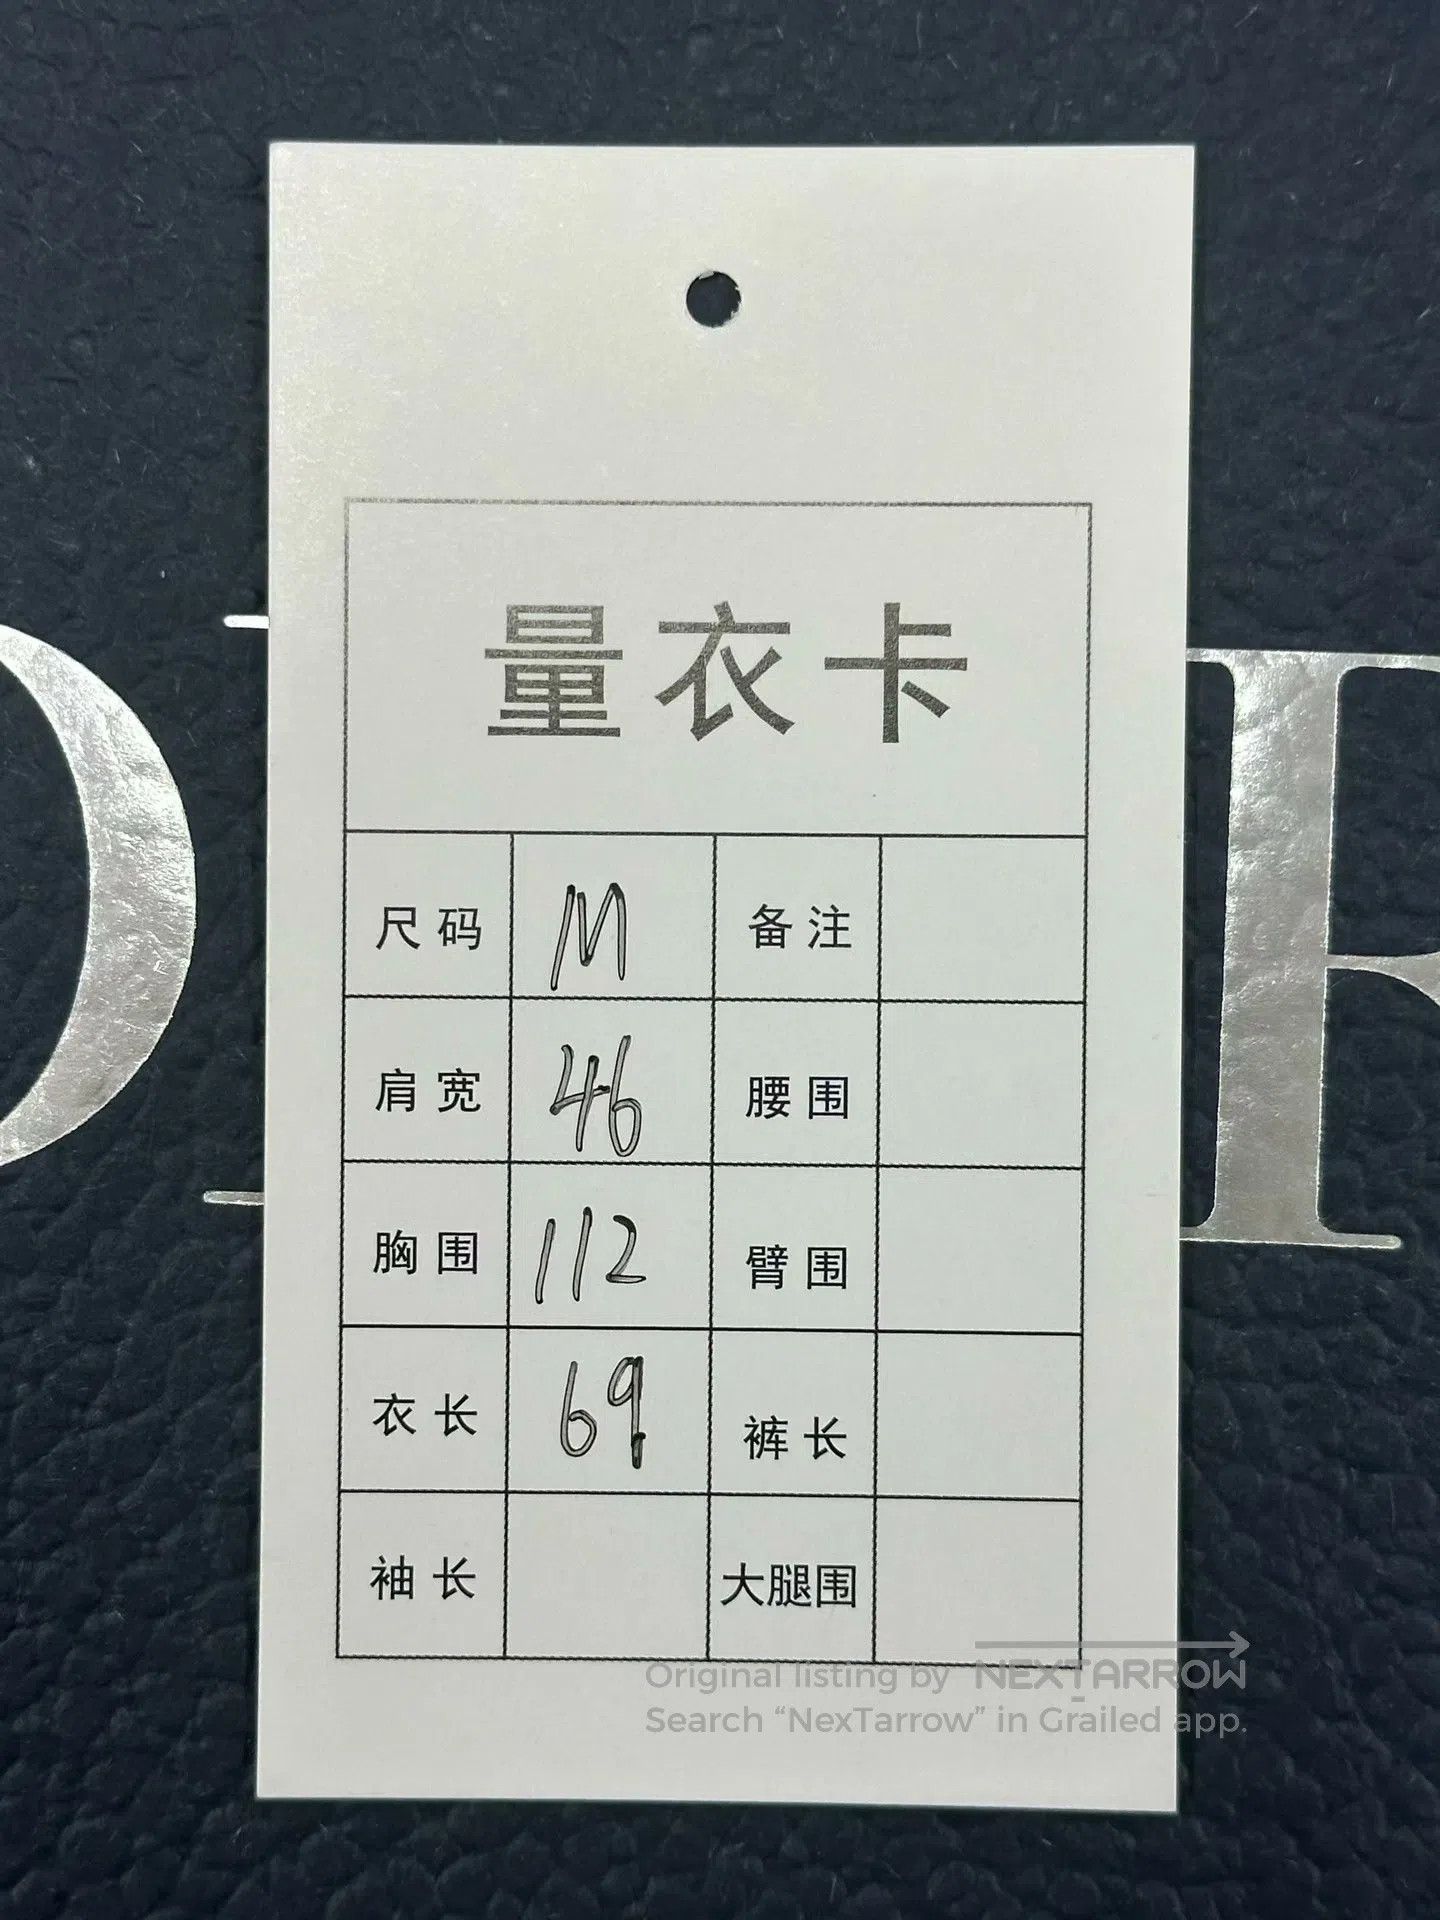 量衣卡
尺码 M 备注
肩宽 46 腰围
胸围 112 臂围
衣长 69 裤长
袖长 大腿围
Original listing by NEXTARROW
Search “NexTarrow” in Grailed app.